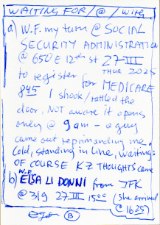 WAITING FOR/@/ With
a) W.F. my turn @ SOCIAL
SECURITY ADMINISTRATION
@ 650 E 12th st 27 III
to register for MEDICARE
845 I shook/rattled the
door. NOT aware it opens
only @ 9am - a guy
came out reprimanding me.
Cold, standing in line, waiting
OF COURSE KZ THOUGHTS came
b) W. ELSA LI DONNI from JFK
@ 319 27 III 1520 (she arrived
@ 1625)
B